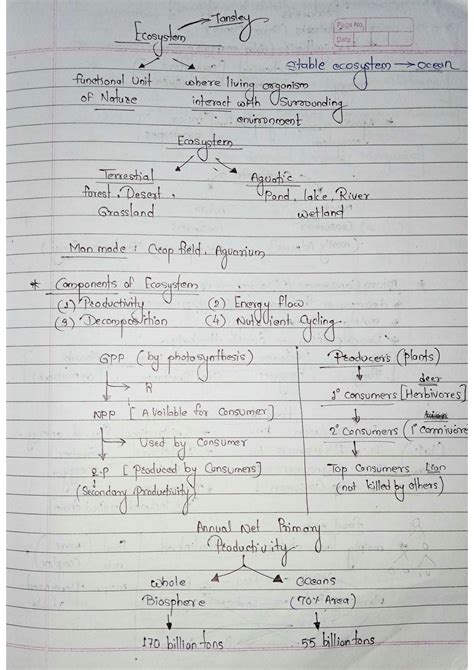 Page No.
Date
Ecosystem → Tansley
Stable ecosystem → Ocean
functional Unit
of Nature
where living organism
interact with Surrounding
environment
Ecosystem
Terrestial
forest, Desert,
Grassland
Aquatic
Pond, lake, River
wetland
Man made : Crop field, Aquarium
* Components of Ecosystem
(1) Productivity (2) Energy flow
(3) Decomposition (4) Nutrient Cycling
GPP (by photosynthesis)
→ R
NPP [Available for Consumer]
→ Used by Consumer
S.P [Produced by Consumers]
(Secondary Productivity)
Producers (plants)
deer
1° Consumers [Herbivores]
2° Consumers (1° Carnivore
Top Consumers Lion
(not killed by others)
Annual Net Primary
Productivity
whole
Biosphere
170 billion tons
Oceans
(70% Area)
55 billion tons